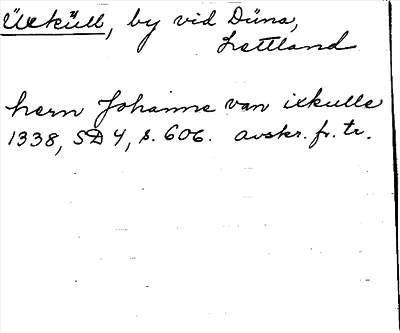 Üxküll, by vid Düna,
Lettland
hern Johanne van ixkulle
1338, SD 4, s. 606. avskr. fr. tr.